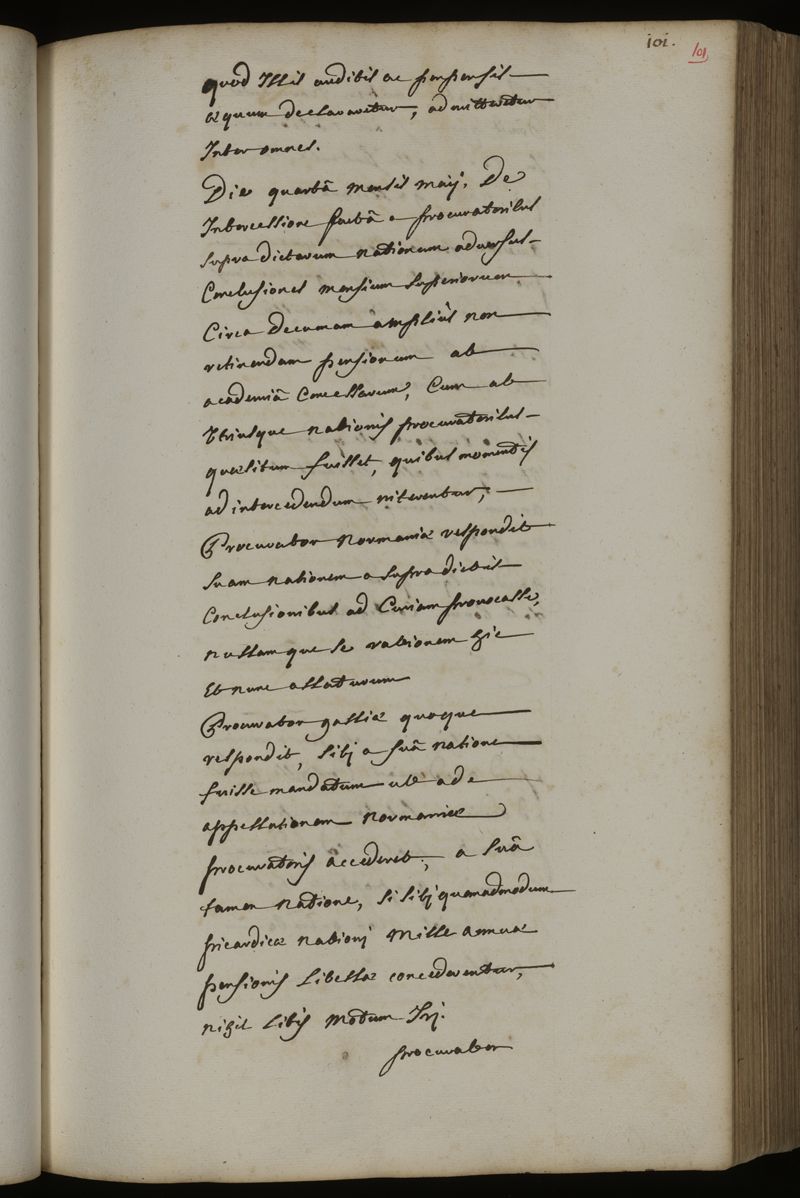 101.
101
quod Illis auditis ac perpensis
æquum declararetur, admitteretur
Inter omnes.
Die quartâ mensis maij, De
Intercessione factâ a procuratoribus
supradictarum nationum adversus
Conclusiones mensium superiorum
Circa decumam ampliùs non
retinendam pensionum ab
academiâ Concessarum, Cum ab
Utriusque nationis procuratoribus
quæsitum fuisset, quibus momentis
ad intercedendum niterentur,
Procurator Normaniæ respondit
suam nationem a supradictis
Conclusionibus ad Curiam provocasse,
nullamque se rationem hic
Et nunc allaturum
Procurator galliæ quoque
respondit, sibj a suâ natione
fuisse mandatum ut ad
appellationem Normanniæ
procuratoris accederet; a suâ
tamen natione, si sibj quemadmodum
picardicæ nationj mille annuæ
pensionis Libellæ concederentur,
nihil Litis motum Irj.
procurator